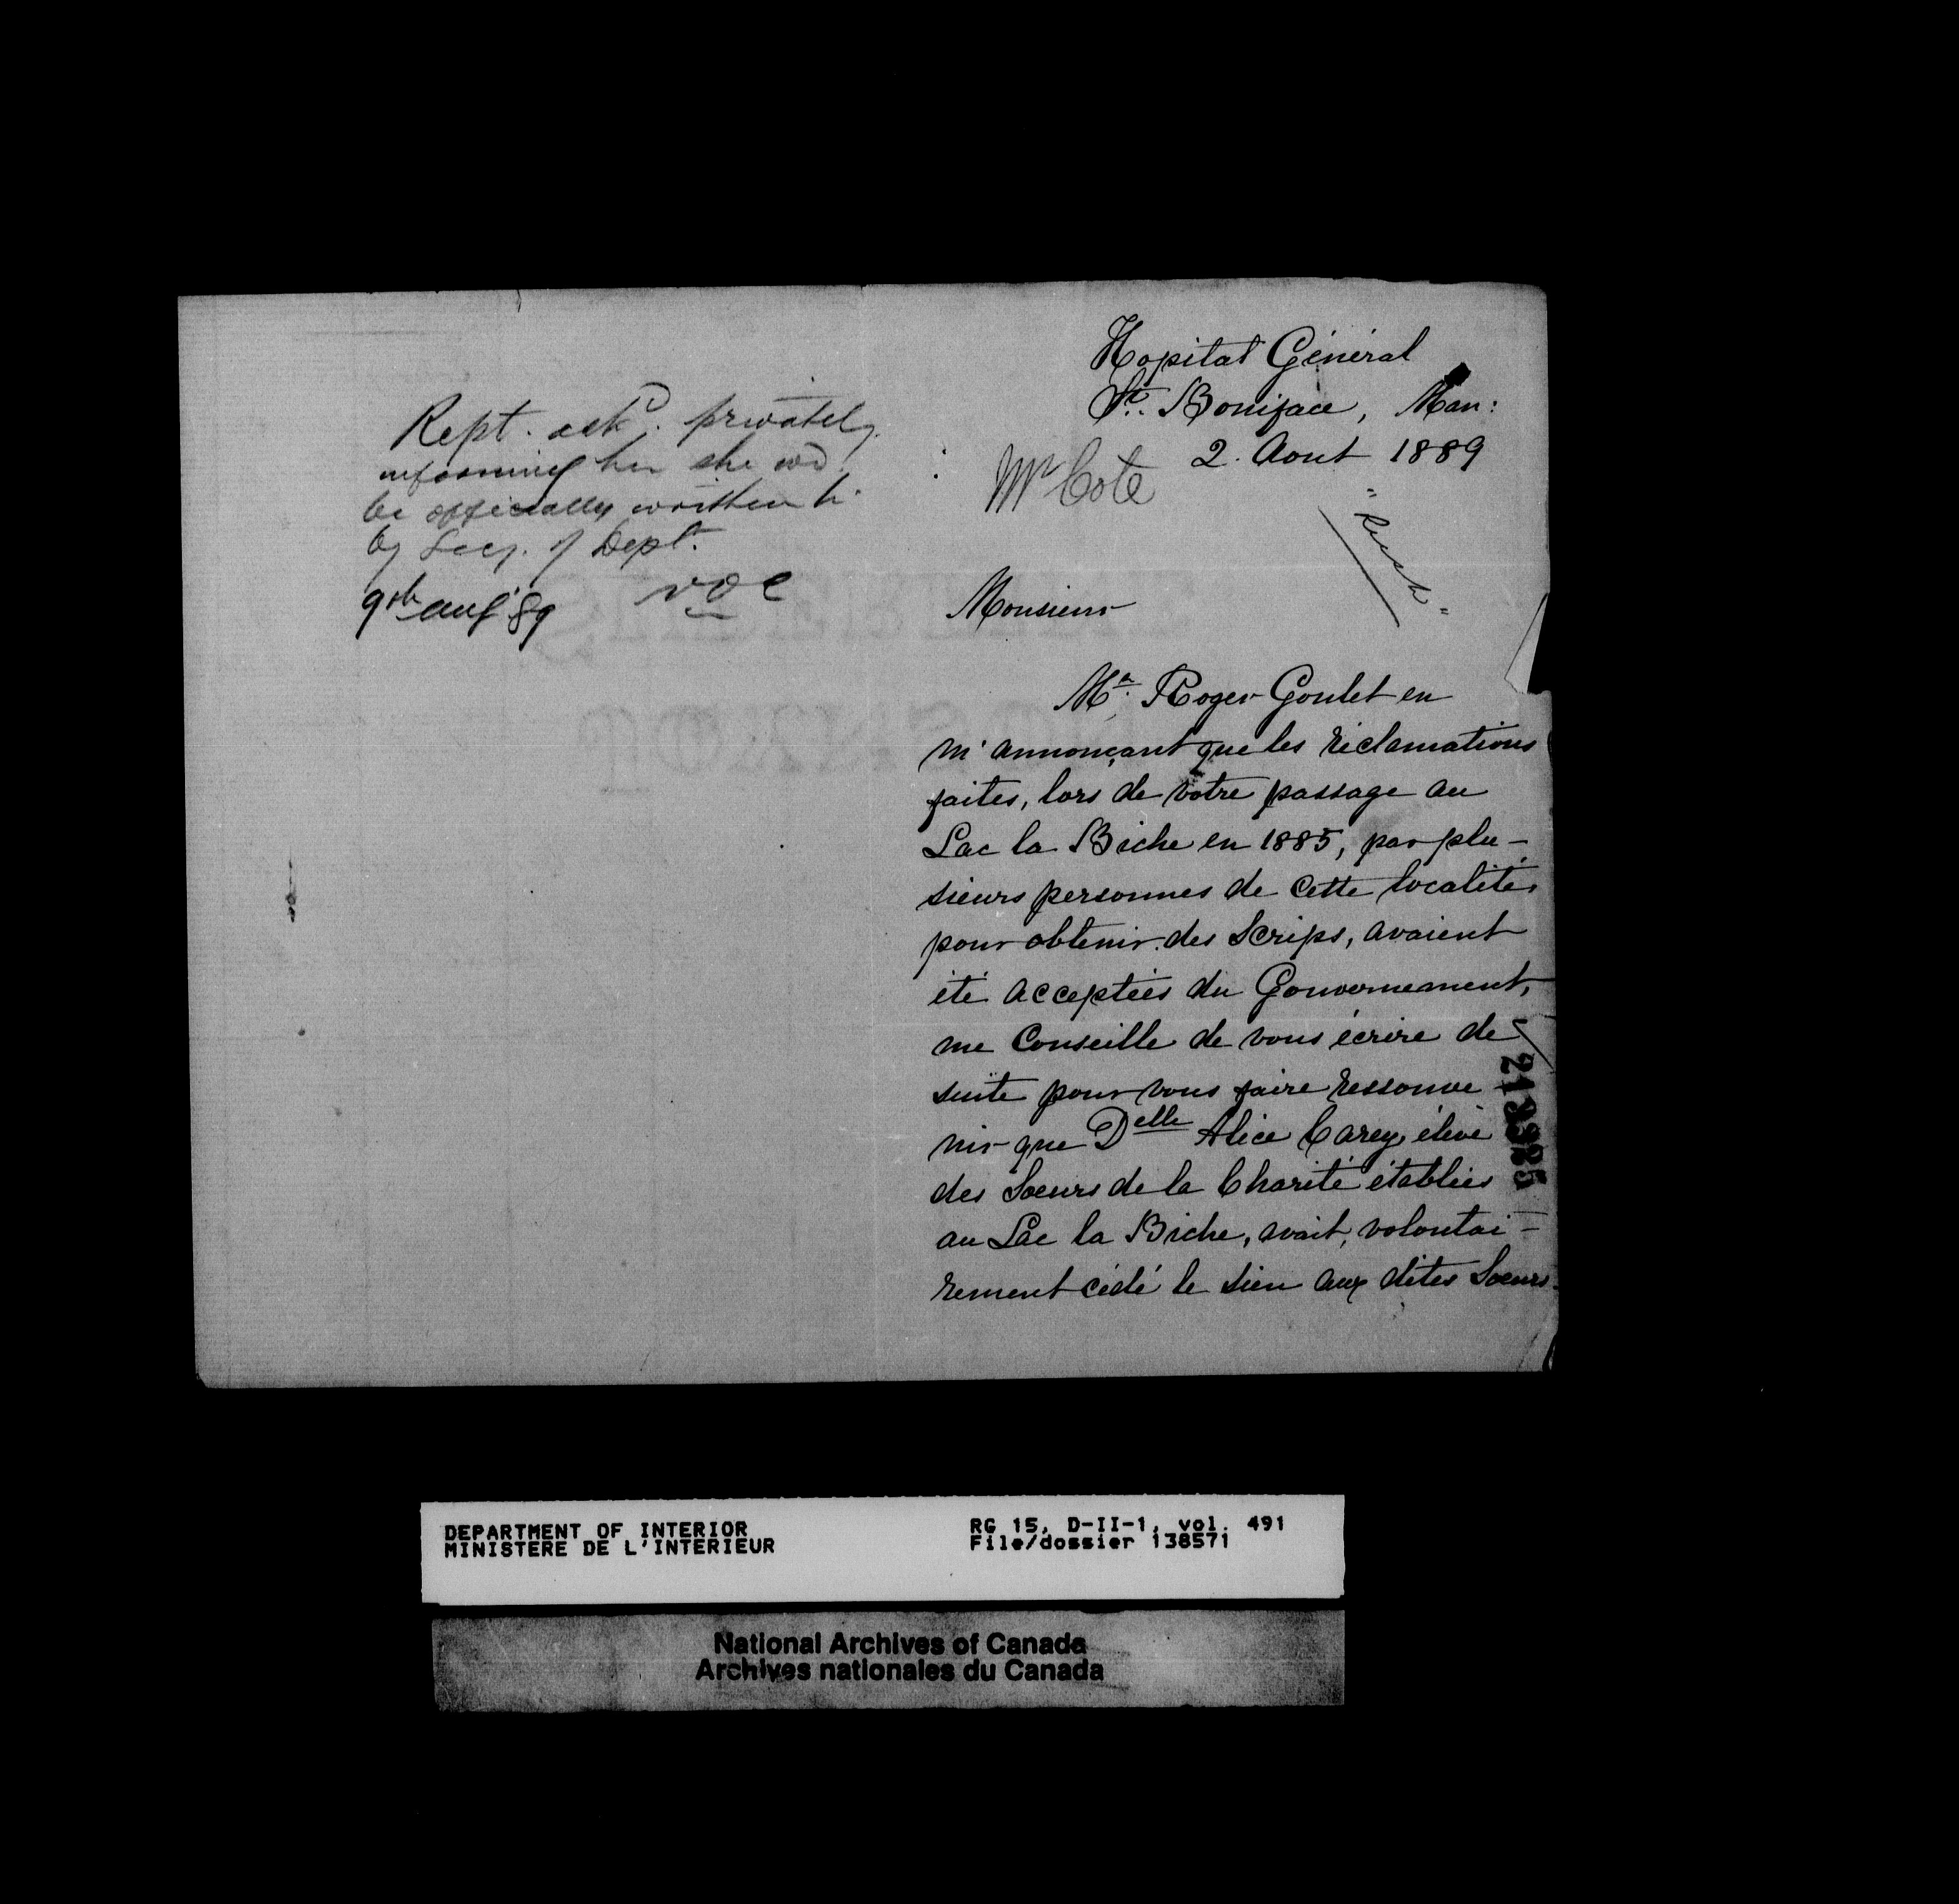 Rept. ack'd. privately
informing her she wd
be officially written to
by Secy. of Dept.
9th Aug '89 NOC
Hopital Général
St. Boniface, Man:
2. Aout 1889
Mr Cote
"Rush"
Monsieur
Mr. Roger Goulet en
m'annonçant que les réclamations
faites, lors de votre passage au
Lac la Biche en 1885, par plu-
sieurs personnes de cette localité,
pour obtenir des Scrips, avaient
été acceptées du Gouvernement,
me Conseille de vous écrire de
suite pour vous faire ressouve-
nir que Delle Alice Carey, élève
des Soeurs de la Charité établies
au Lac la Biche, avait, volontai-
rement cédé le sien aux dites Soeurs.
DEPARTMENT OF INTERIOR
MINISTERE DE L'INTERIEUR
RG 15, D-II-1, vol. 491
File/dossier 138571
National Archives of Canada
Archives nationales du Canada